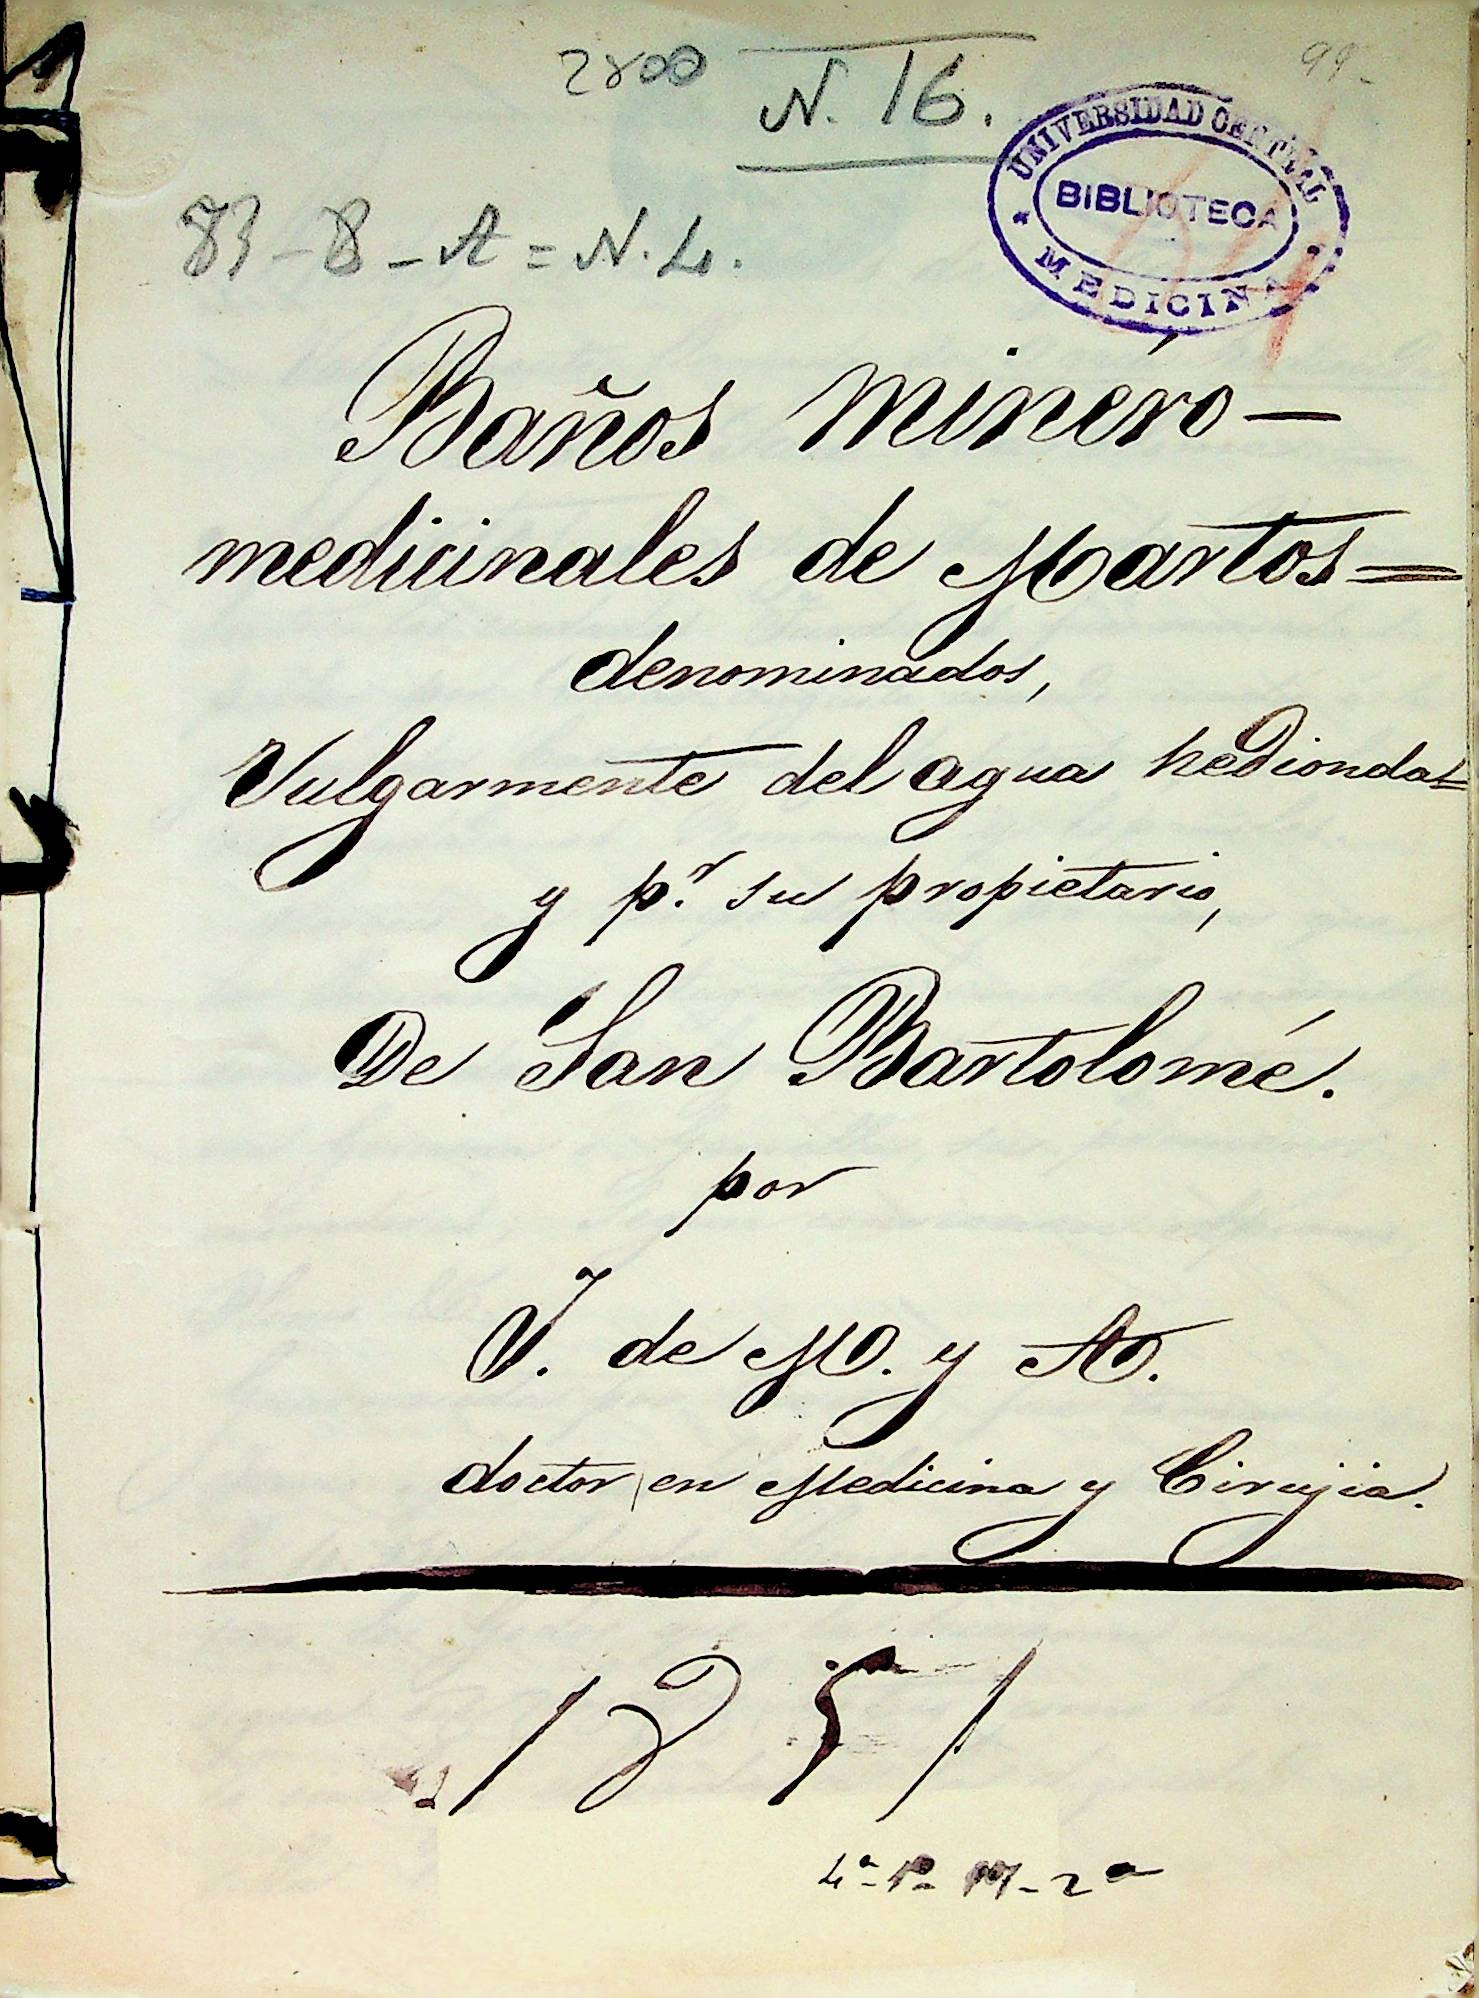 2800
N. 16.
99-
UNIVERSIDAD CENTRAL
BIBLIOTECA
MEDICINA
83-8-A=N.4.
Baños minéro-
medicinales de Martos=
denominados,
Vulgarmente del agua hedionda=
y p.r su propietario,
De San Bartolomé.
por
J. de M. y A.
doctor en Medicina y Cirujia.
1851